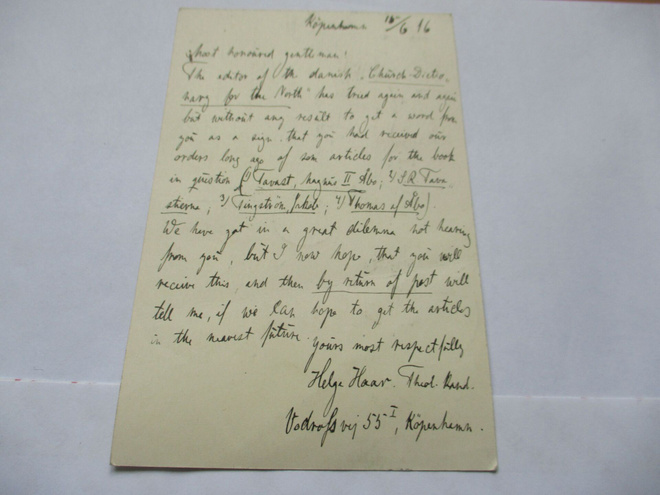 Köpenhamn 15/6 16
Most honoured gentleman!
The editor of the danish "Church-Dictio-
nary for the North" has tried again and again
but without any result to get a word from
you as a sign, that you had received our
orders long ago of som articles for the book
in question (1) Tavast, Magnus II Åbo; 2) S.R. Tava
stierna; 3) Tingström, Jakob; 4) Thomas af Åbo).
We have got in a great dilemma not hearing
from you, but I now hope, that you will
receive this, and then by return of post will
tell me, if we can hope to get the articles
in the nearest future.
yours most respectfully
Helge Haar. Theol. Kand.
Vodroffsvej 55 I, Köpenhamn.